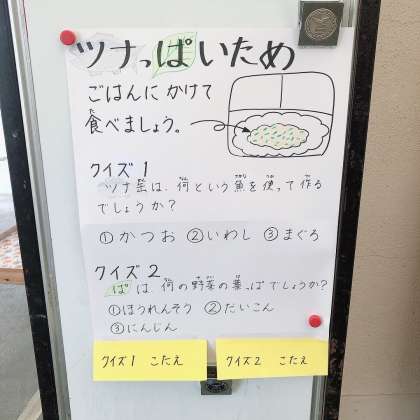 ツナっぱいため
ごはんに かけて
食べましょう。
クイズ 1
ツナ缶は、何という魚を使って作る
でしょうか？
①かつお ②いわし ③まぐろ
クイズ 2
ぱ は 何の野菜の葉っぱでしょうか？
①ほうれんそう ②だいこん
③にんじん
クイズ1 こたえ
クイズ2 こたえ